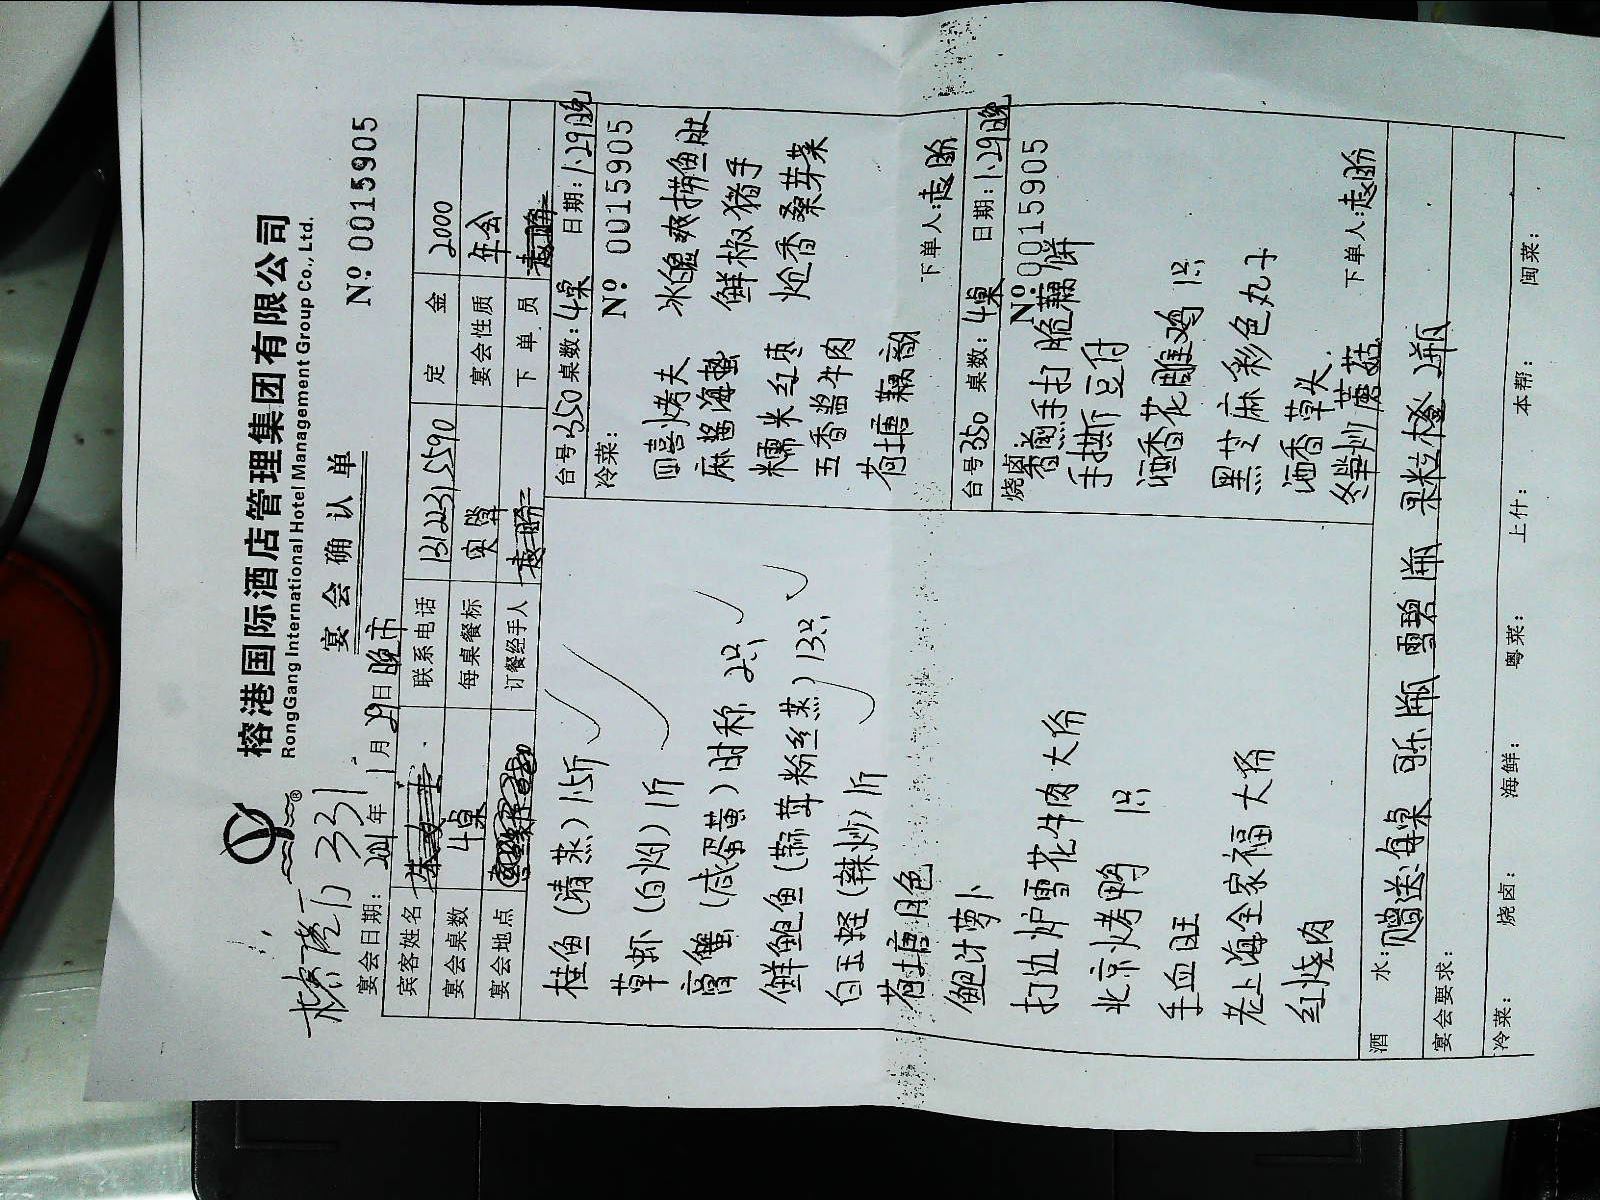 榕港国际酒店管理集团有限公司
RongGang International Hotel Management Group Co., Ltd.
®
宴会确认单
331
№ 0015905
宴会日期: 2021年 1月 29日 晚市
宾客姓名 联系电话 13122315590 定金 2000
宴会桌数 4桌 每桌餐标 宴会性质 年会
宴会地点 订餐经手人 下单员
桂鱼(清蒸) 1.5斤
草虾(白灼) 1斤
膏蟹(咸蛋黄) 时称 2只
鲜鲍鱼(蒜茸粉丝蒸) 13只
白玉蛏(辣炒) 1斤
荷塘月色
鲍汁萝卜
打边炉雪花牛肉 大份
北京烤鸭 1只
手血旺
老上海全家福 大份
红烧肉
台号 350 桌数: 4桌 日期: 1.29晚
冷菜: № 0015905
四喜烤夫 冰鎮爽捞鱼肚
麻酱海蜇 鲜椒猪手
糯米红枣 炝香桑芽菜
五香酱牛肉
荷塘藕
下单人:
台号 350 桌数: 4桌 日期: 1.29晚
烧卤 № 0015905
香煎手打脆藕饼
手撕豆付
酒香花雕鸡 1只
黑芝麻彩色丸子
酒香草头
冬笋炒蘑菇
下单人:
酒水: 赠送:每桌 可乐1瓶 雪碧1瓶 果粒橙1瓶
宴会要求:
冷菜: 烧卤: 海鲜: 粤菜: 上什: 本帮: 闽菜: